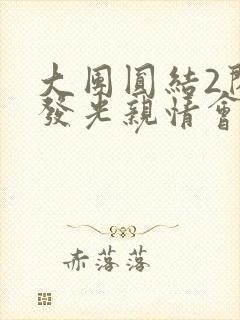 大團圓結2
發光親情會
赤落落